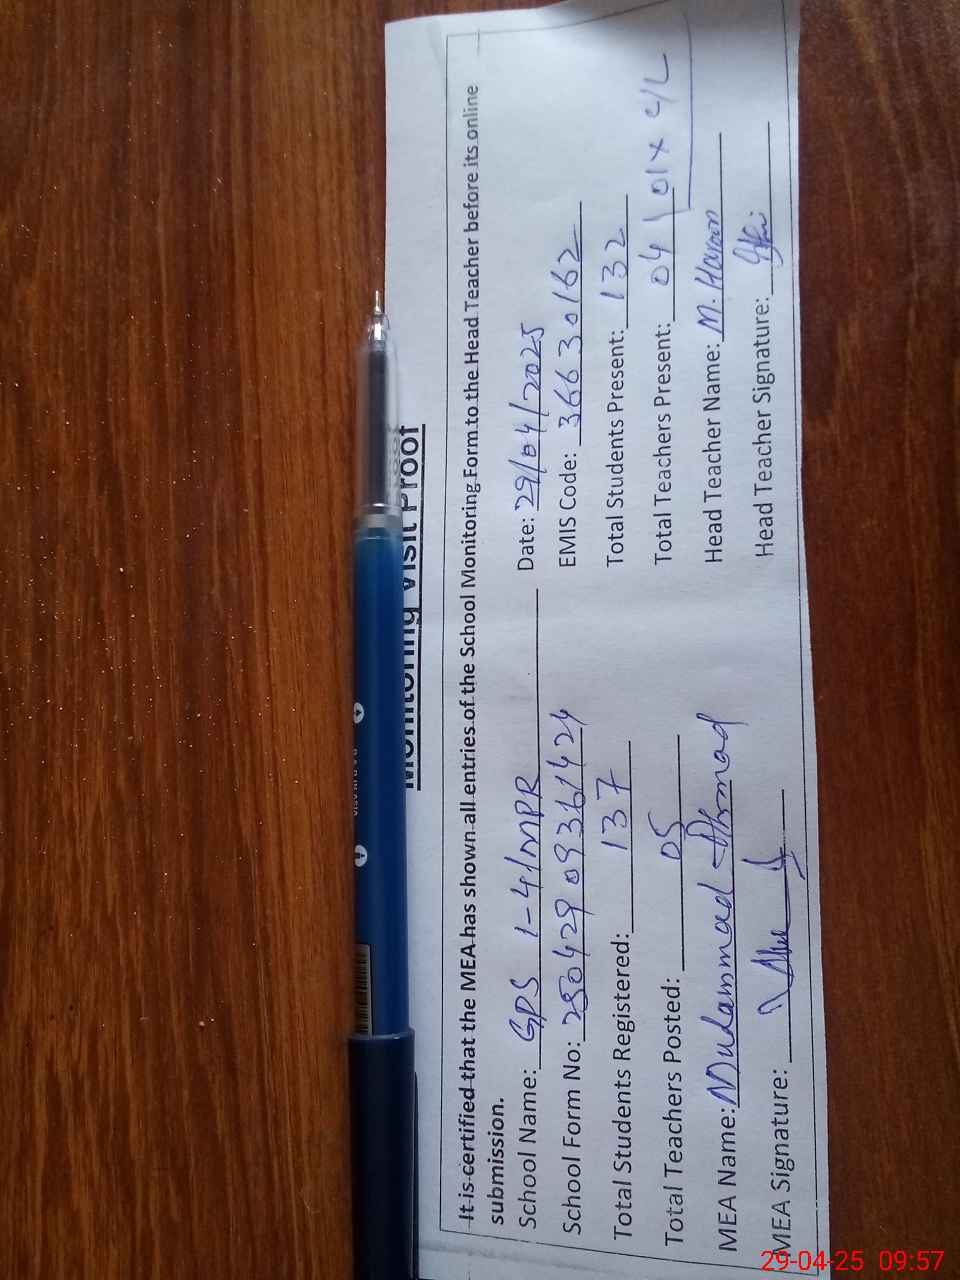 Monitoring Visit Proof
It is certified that the MEA has shown all entries of the School Monitoring Form to the Head Teacher before its online
submission.
School Name: GPS 1-41MPR Date: 29/04/2025
School Form No: 250429 09361424 EMIS Code: 36630162
Total Students Registered: 137 Total Students Present: 132
Total Teachers Posted: 05 Total Teachers Present: 04 01x C/L
MEA Name: Muhammad Head Teacher Name: M. Haroon
MEA Signature: Head Teacher Signature:
29-04-25 09:57